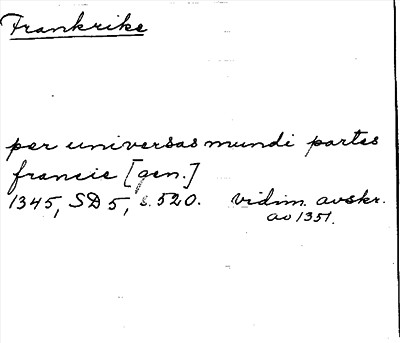 Frankrike
per universas mundi partes
francie [gen.]
1345, SD 5, s. 520. vidim. avskr.
av 1351.